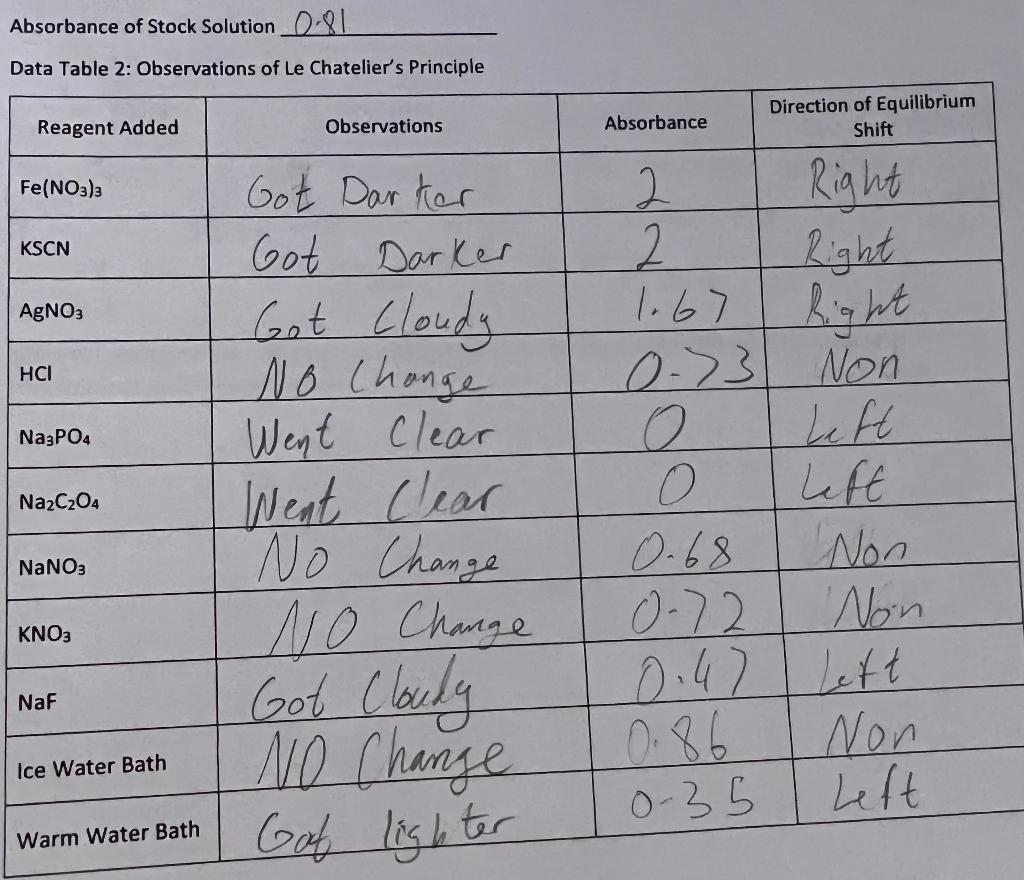 Absorbance of Stock Solution 0.81
Data Table 2: Observations of Le Chatelier's Principle
Reagent Added Observations Absorbance Direction of Equilibrium Shift
Fe(NO₃)₃ Got Darker 2 Right
KSCN Got Darker 2 Right
AgNO₃ Got Cloudy 1.67 Right
HCl No Change 0.73 Non
Na₃PO₄ Went Clear 0 Left
Na₂C₂O₄ Went Clear 0 Left
NaNO₃ NO Change 0.68 Non
KNO₃ NO Change 0.72 Non
NaF Got Cloudy 0.47 Left
Ice Water Bath NO Change 0.86 Non
Warm Water Bath Got lighter 0.35 Left